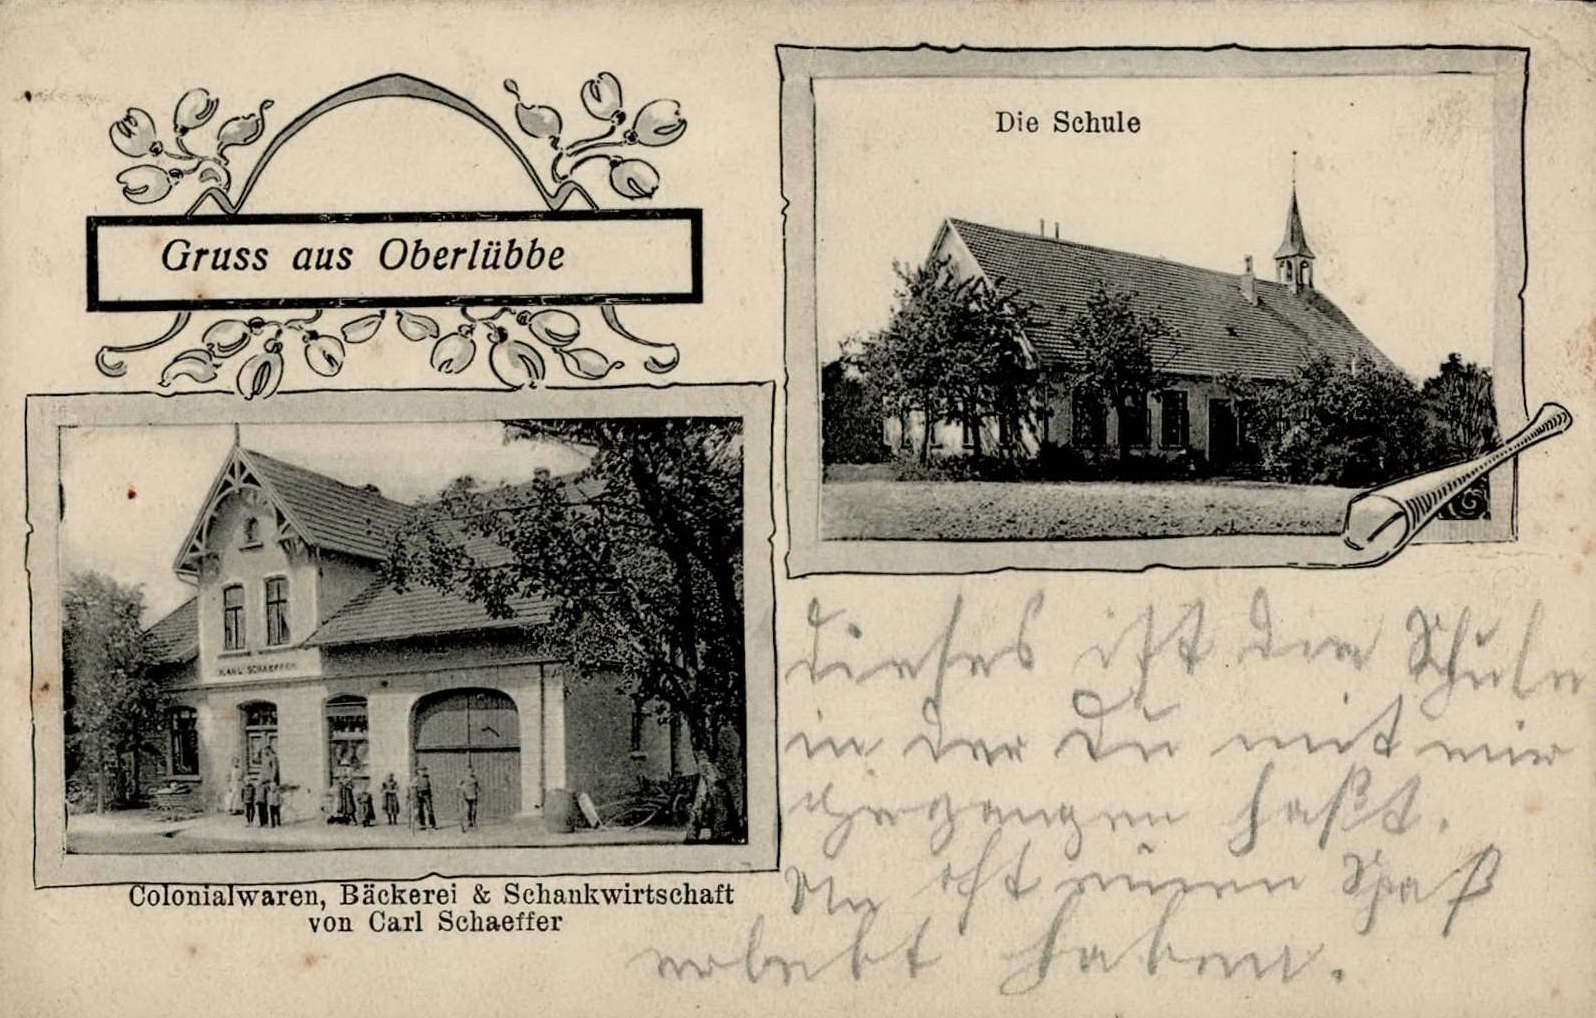 Gruss aus Oberlübbe
Die Schule
KARL SCHAEFFER
Colonialwaren, Bäckerei & Schankwirtschaft
von Carl Schaeffer
dieses ist die Schule
in der Du mit mir
gegangen haßt.
oft einen Spaß
erlebt haben.